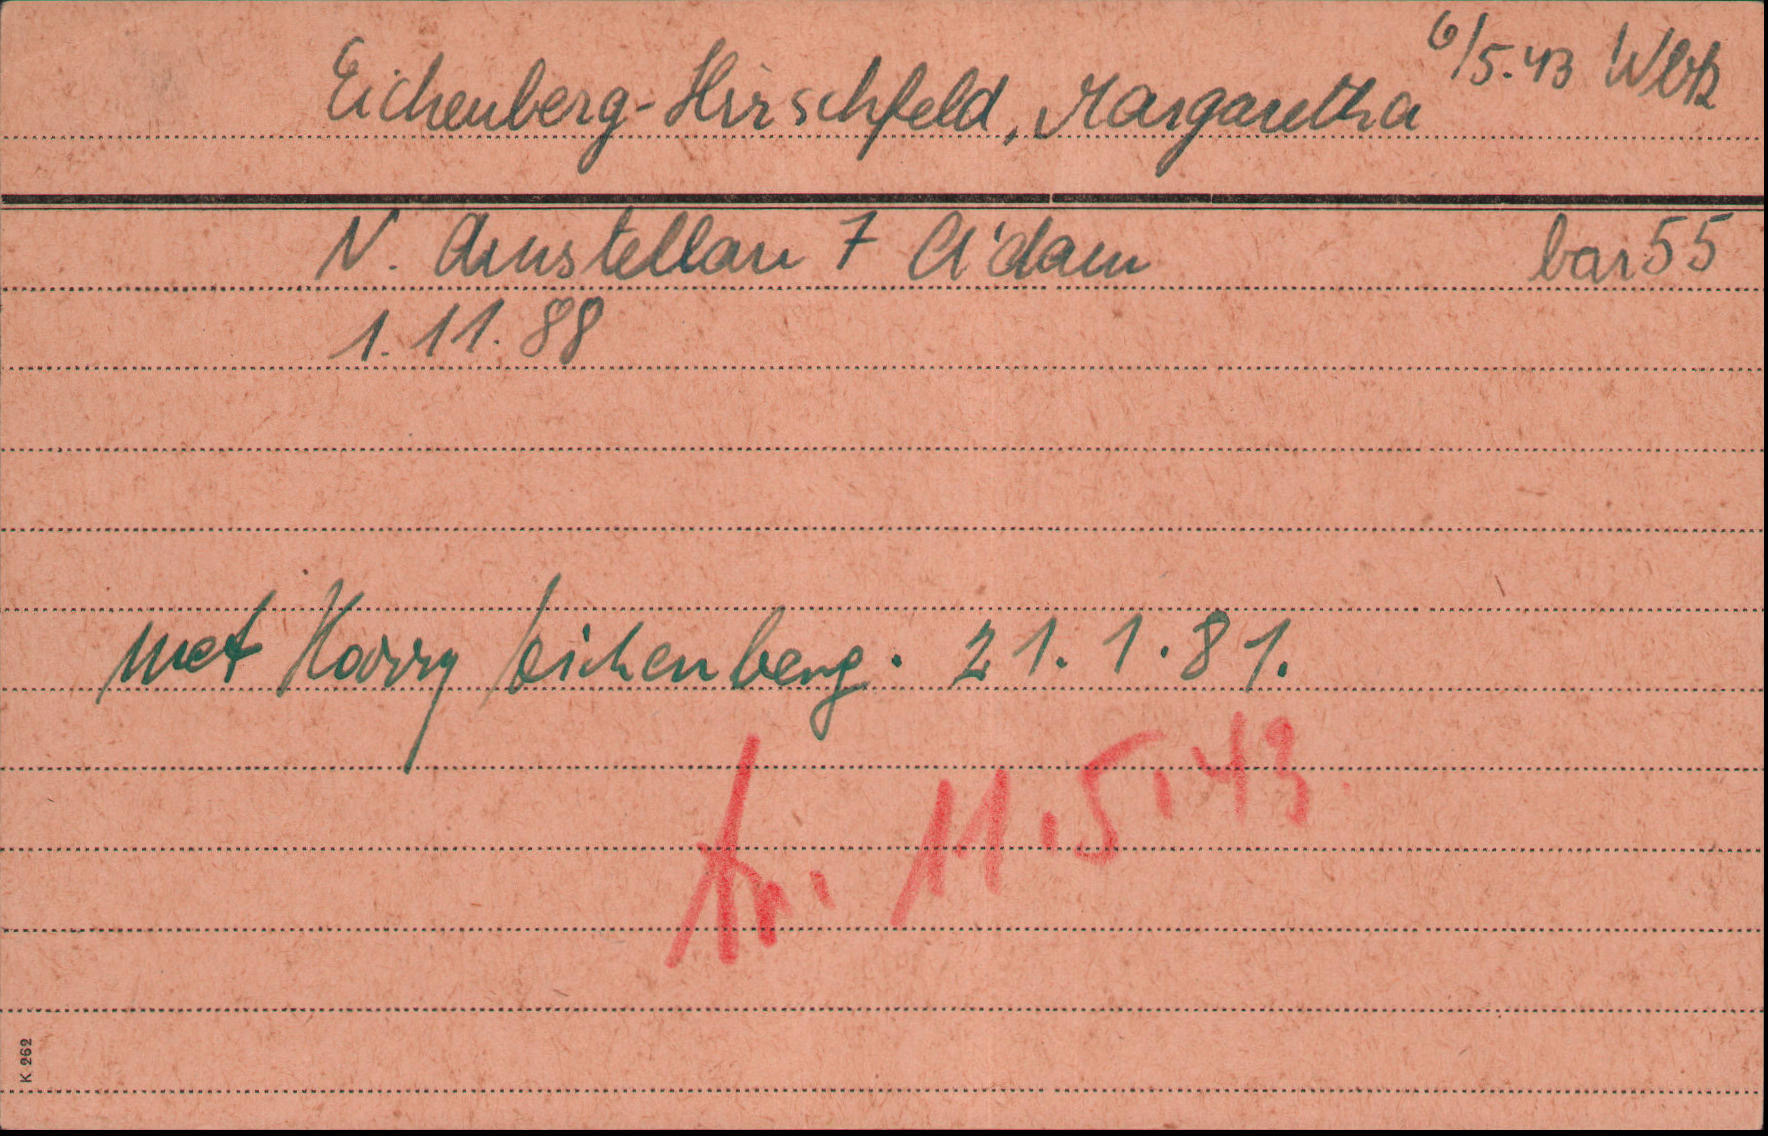 6/5.43 Wbk
Eichenberg-Hirschfeld, Margaretha
N. Amstellaan 7 A'dam bar 55
1.11.88
met Harry Eichenberg. 21.1.81.
tr. 11.5.43.
K 262